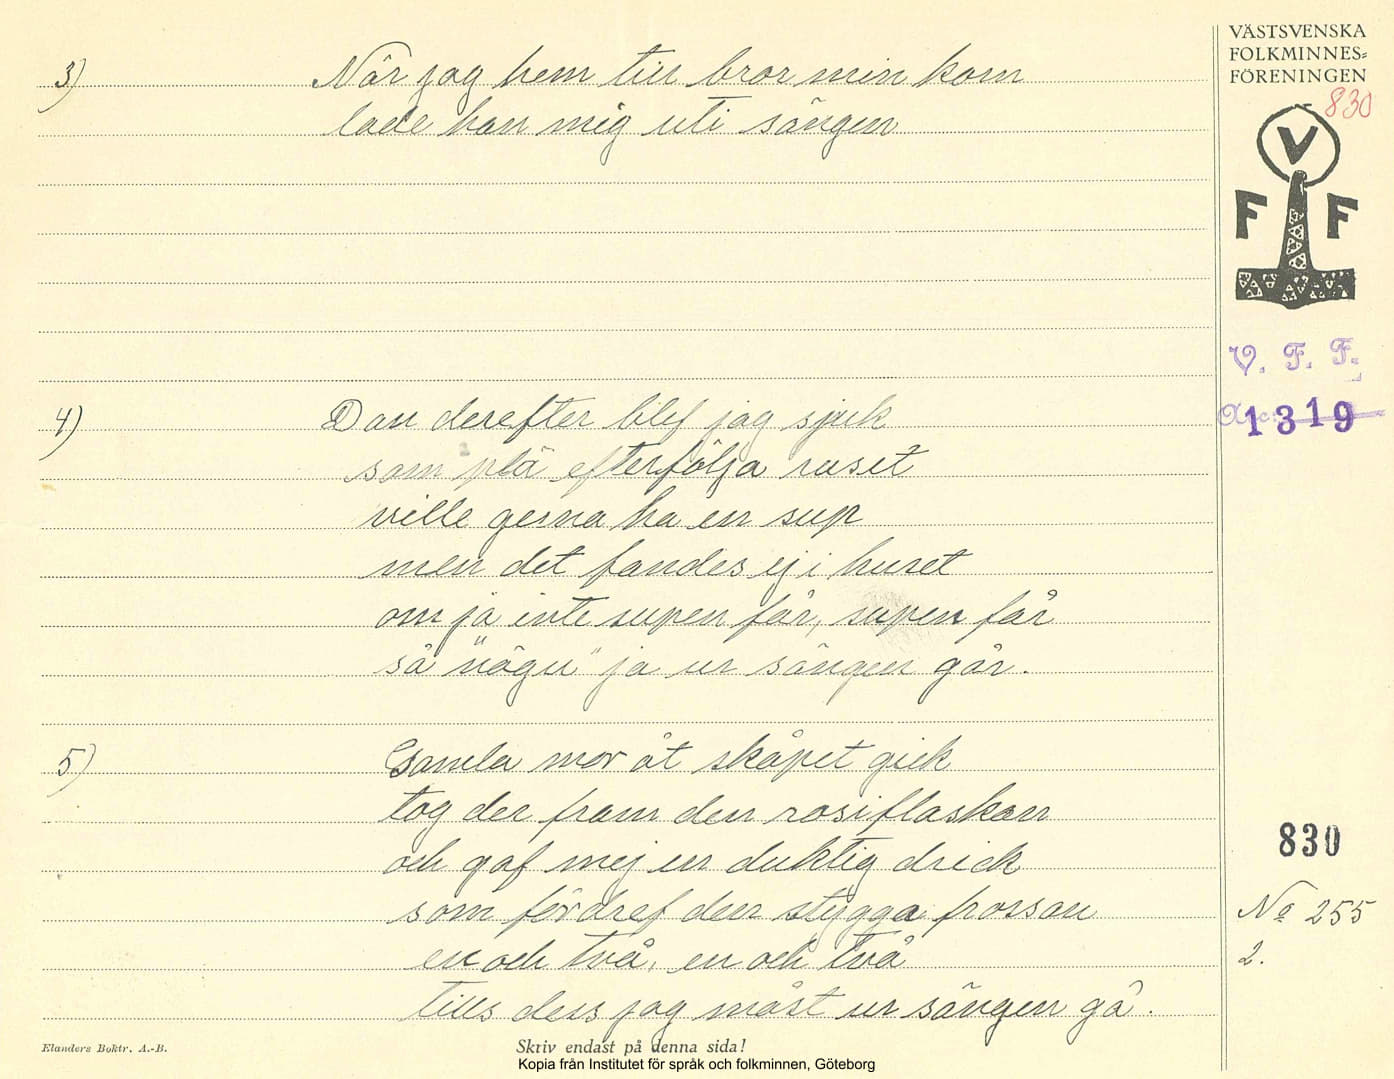 VÄSTSVENSKA
FOLKMINNES=
FÖRENINGEN
830
V
F F
V. F. F.
Acc. 1319
3) När jag hem till bror min kom
lade han mig uti sängen
4) Dan derefter blef jag sjuk
som plä efterfölja ruset
ville gerna ha en sup
men det fandes ej i huset
om ja inte supen får, supen får
så "någu" ja ur sängen går.
5) Gamla mor åt skåpet gick
tog der fram den rosiflaskan
och gaf mej en duktig drick
som fördref den stygga frossan
en och två, en och två
tills dess jag måst ur sängen gå.
830
No 255
2.
Elanders Boktr. A.-B.
Skriv endast på denna sida!
Kopia från Institutet för språk och folkminnen, Göteborg